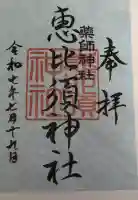 奉拝
薬師神社
恵比須神社
令和七年七月十九日